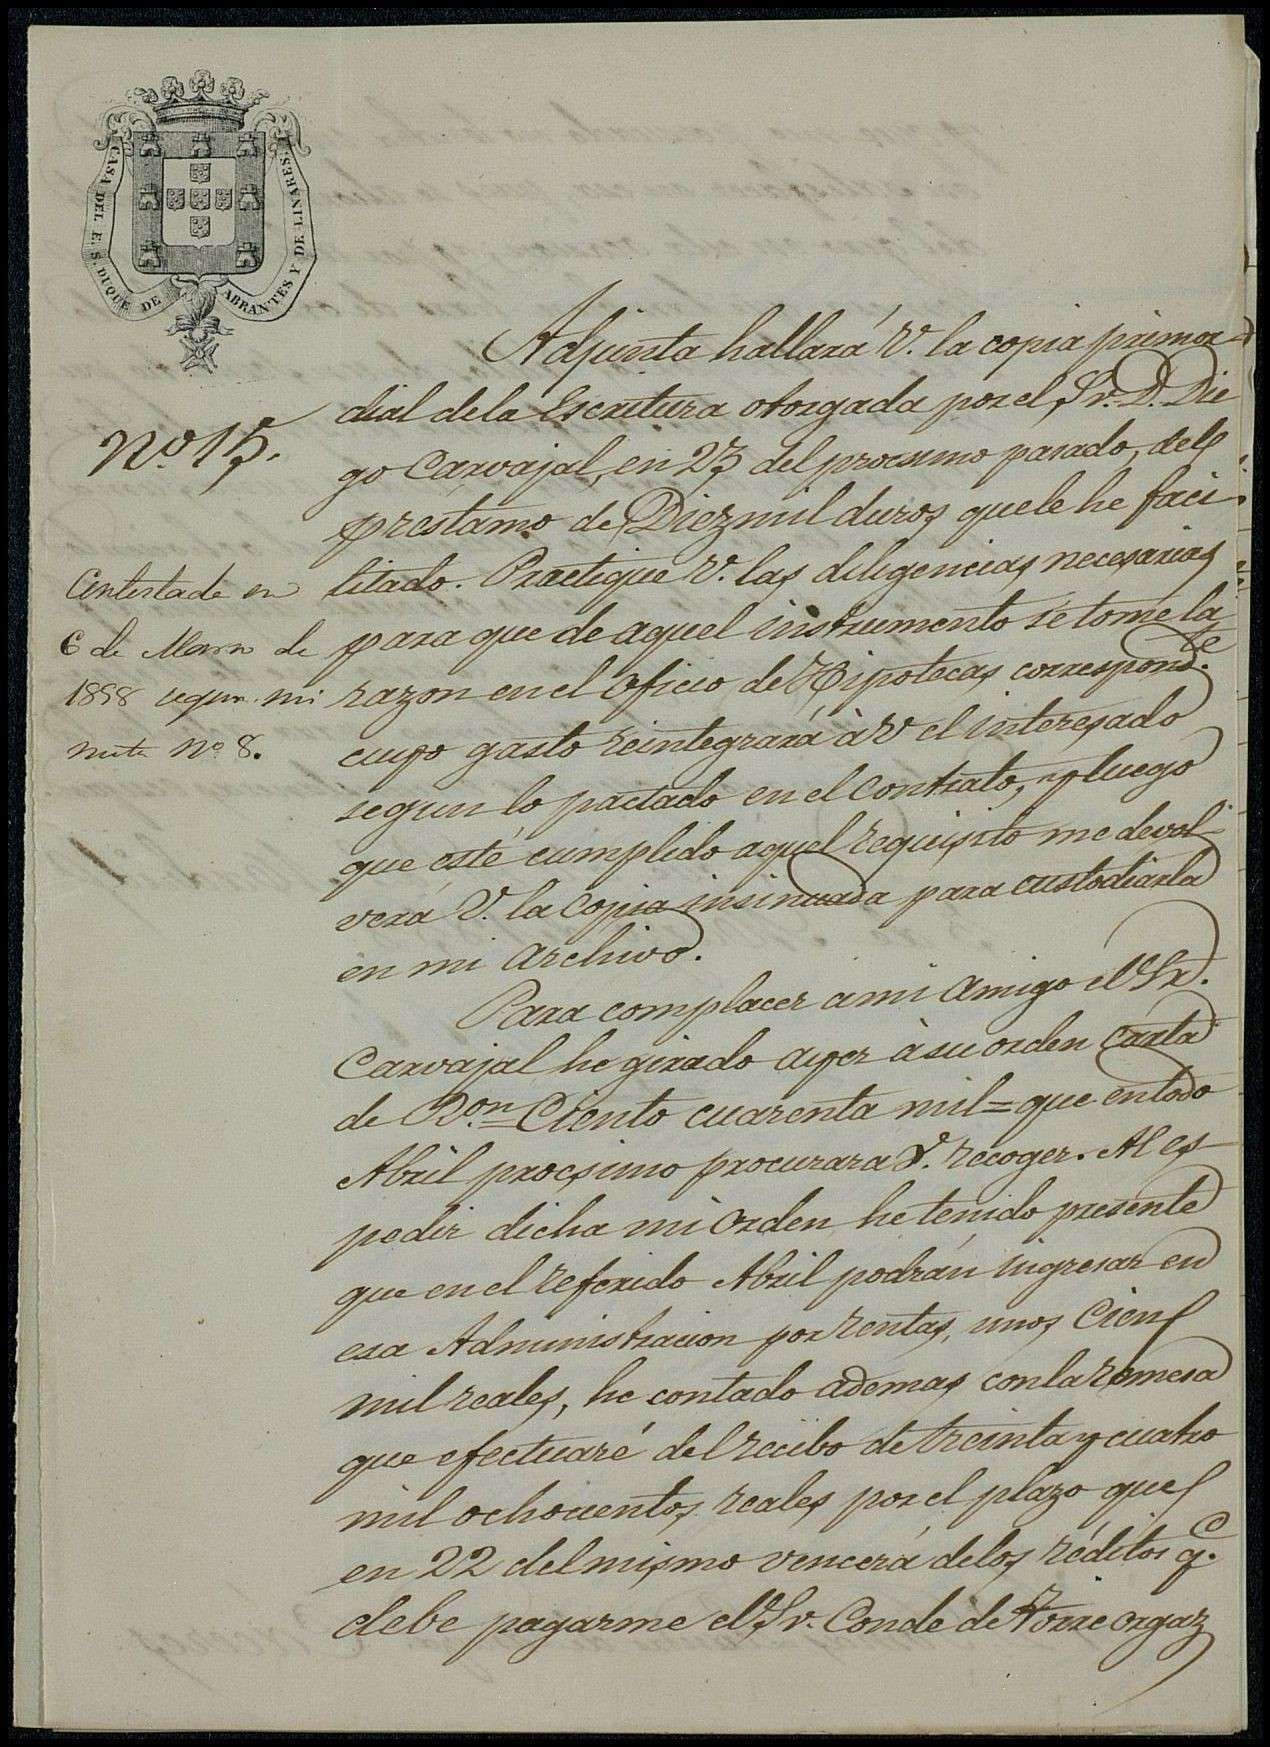 CASA DEL E. S. DUQUE DE ABRANTES Y DE LINARES.
Nº. 15.
Contestada en
6 de Marzo de
1858 segun mi
nuta Nº 8.
Adjunta hallará V. la copia primor
dial de la Escritura otorgada por el Sr. D. Die
go Carvajal, en 23 del procsimo pasado, del
prestamo de Diez mil duros que le he faci
litado. Practique V. las diligencias necesarias
para que de aquel instrumento se tome la
razon en el Oficio de Hipotecas correspond.te
cuyo gasto reintegrará à V el interesado
segun lo pactado en el Contrato, y luego
que esté cumplido aquel requisito me devol
verá V. la Copia insinuada para custodiarla
en mi Archivo.
Para complacer a mi Amigo el Sr.
Carvajal he girado ayer à su orden carta
de Ron = Ciento cuarenta mil = que en todo
Abril procsimo procurara V. recoger. Al es
pedir dicha mi Orden he tenido presente
que en el referido Abril podrán ingresar en
esa Administracion por rentas, unos Cien
mil reales, he contado ademas con la remesa
que efectuaré del recibo de treinta y cuatro
mil ochocientos reales por el plazo que
en 22 del mismo vencerá de los réditos q.e
debe pagarme el Sr. Conde de Torre orgaz